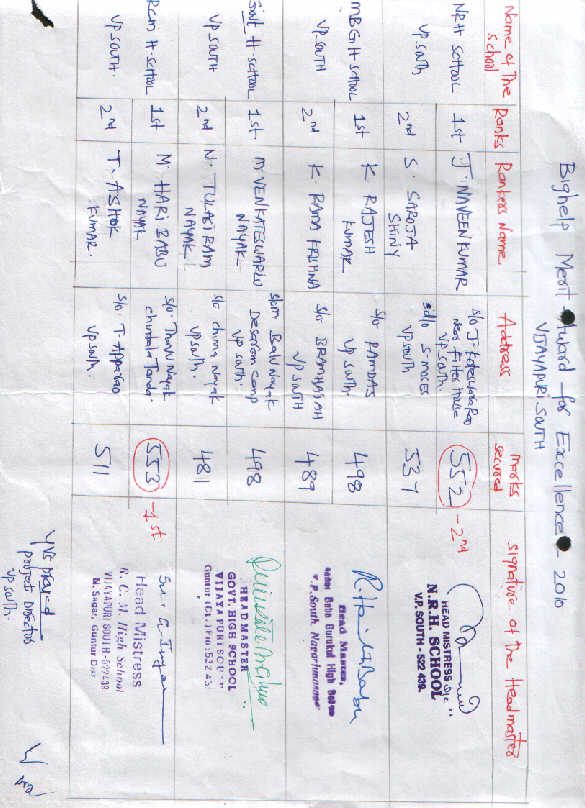 Bighelp Merit Award for Excellence 2010
VIJAYAPURI SOUTH
Name of The School
Ranks
Rankers Name
Address
Marks secured
Signature of the Headmaster
NRH SCHOOL
VP. South
1st
J. NAVEEN KUMAR
S/o J. Koteswara Rao
Near Filter House
V.P. South
552 - 2nd
HEAD MISTRESS
N.R.H. SCHOOL
V.P. SOUTH - 522 439.
2nd
S. SAROJA
SHINY
d/o S. MOSES
VP South
537
MBGH SCHOOL
VP. SOUTH
1st
K. RAJESH
KUMAR
S/o RAMDAS
VP South.
498
Head Master,
Baba Gurukul High School
V.P. South Nagarjunasagar
2nd
K. RAMA KRISHNA
S/o BRAMHAIAH
VP SOUTH
489
Govt H. SCHOOL
VP SOUTH
1st
M. VENKATESWARLU
NAYAK
S/o M BALU Nayak
VP South.
498
HEADMASTER
GOVT. HIGH SCHOOL
VIJAYAPURI SOUTH
2nd
N. TULASI RAM
NAYAK
S/o China Nayak
VP South.
481
RCM H. SCHOOL
VP SOUTH.
1st
M. HARI BABU
NAYAK
S/o. Thavu Nayak
Chintala Tanda.
553 - 1st
Head Mistress
R. C. M. High School
VIJAYAPURI SOUTH-522439
N. Sagar, Guntur Dist
2nd
T. ASHOK
KUMAR.
S/o T. Apparao
VP South.
511
PROJECT DIRECTOR
VP South.